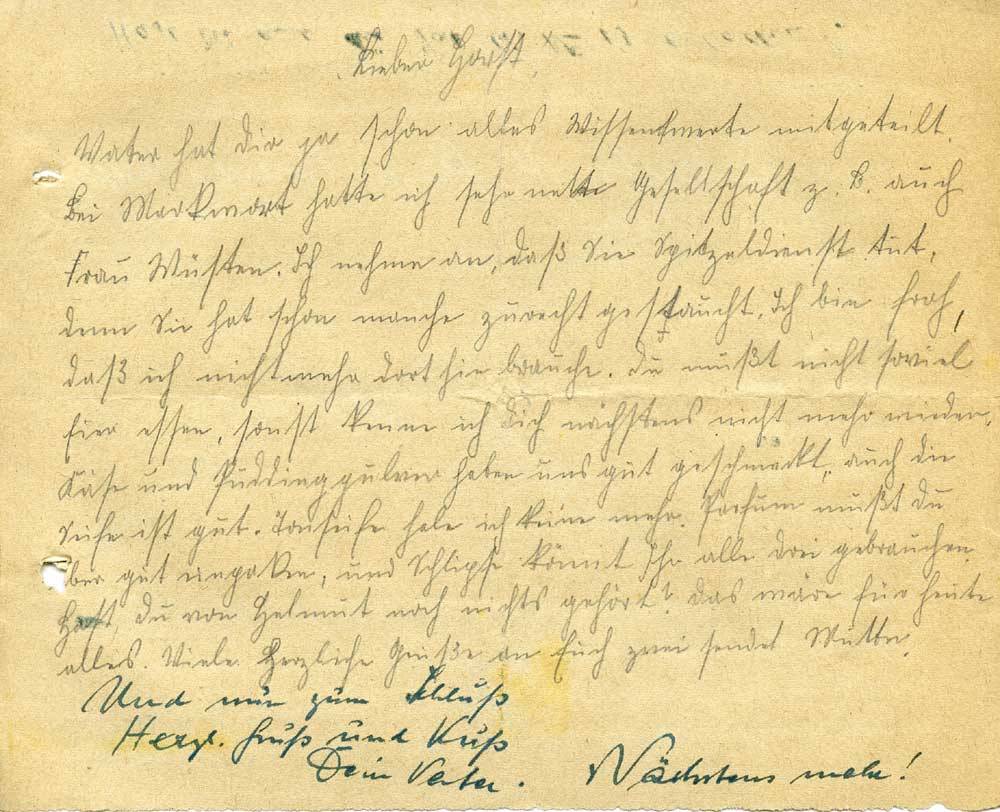 Lieber Horst,
Vater hat Dir ja schon alles Wissenswerte mitgeteilt.
Bei Markwart hatte ich sehr nette Gesellschaft z. B. auch
Frau Wüsten. Ich nehme an, daß Sie Spitzeldienst tut,
denn Sie hat schon manche zurecht gestaucht. Ich bin froh,
daß ich nicht mehr dort hin brauche. Du mußt nicht soviel
Eier essen, sonst kenne ich Dich nächstens nicht mehr wieder.
Käse und Puddingpulver haben uns gut geschmeckt, auch die
Seife ist gut. Tonseife habe ich keine mehr. Parfüm mußt du
aber gut einpacken, und Schlipse könnt Ihr alle drei gebrauchen.
Hast du von Helmut noch nichts gehört? Das wäre für heute
alles. Viele Herzliche Grüße an Euch zwei sendet Mutter.
Und nun zum Schluß
Herzl. Gruß und Kuß
Dein Vater. Nächstens mehr!